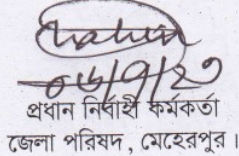 ০৬/৭/২৩
প্রধান নির্বাহী কর্মকর্তা
জেলা পরিষদ, মেহেরপুর।